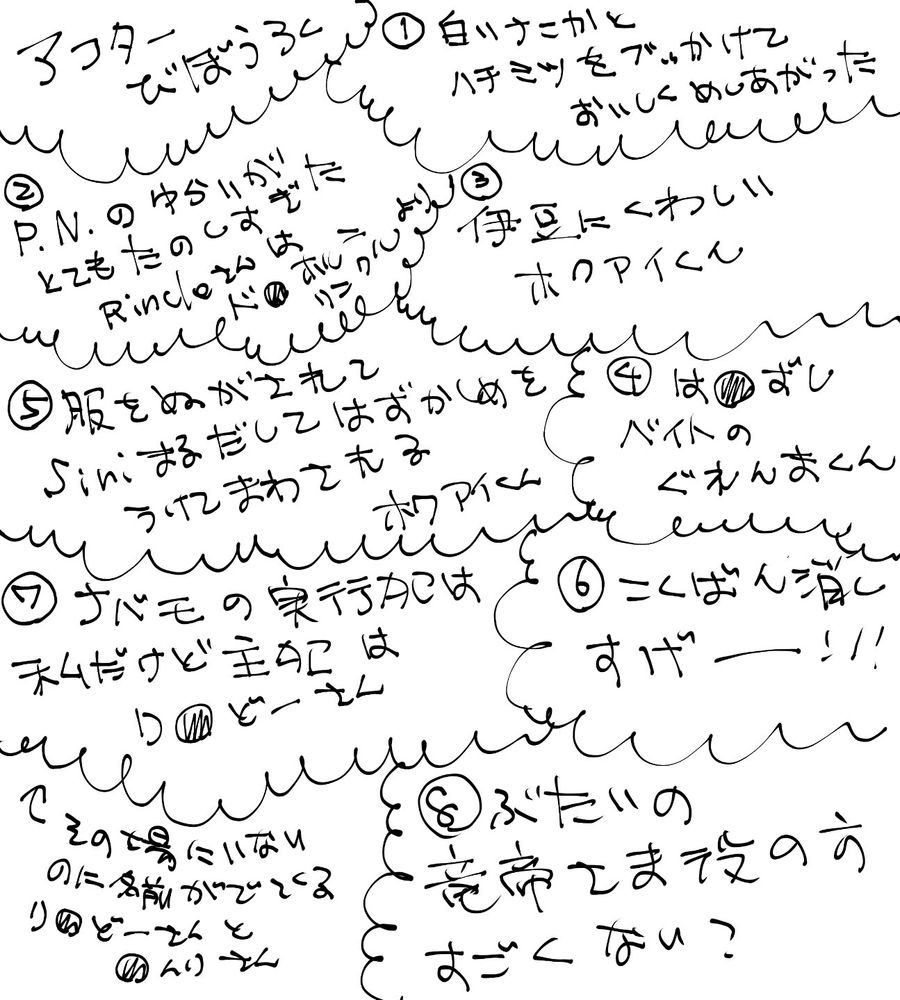 アフター
びぼうろく
① 白いさこかと
ハチミツをブッかけて
おいしくめしあがった
②
P.N.のゆらいが
とてもたのしすぎた
Rincloさんは
ド●ホルニ
リンクルより
③
伊豆にくわしい
ホワアイくん
④ は●ずし
バイトの
ぐえんまくん
⑤ 服をぬがされて
Siriまるだしてはずかしめを
うけてまわされる
ホワアイくん
⑥ こくばん消し
すげー!!!
⑦ サバモの実行犯は
私だけど主犯は
り●どーさん
↑
その場にいない
のに名前がでてくる
り●どーさんと
●んりさん
⑧ ぶたいの
竜帝さま役の方
すごくない?